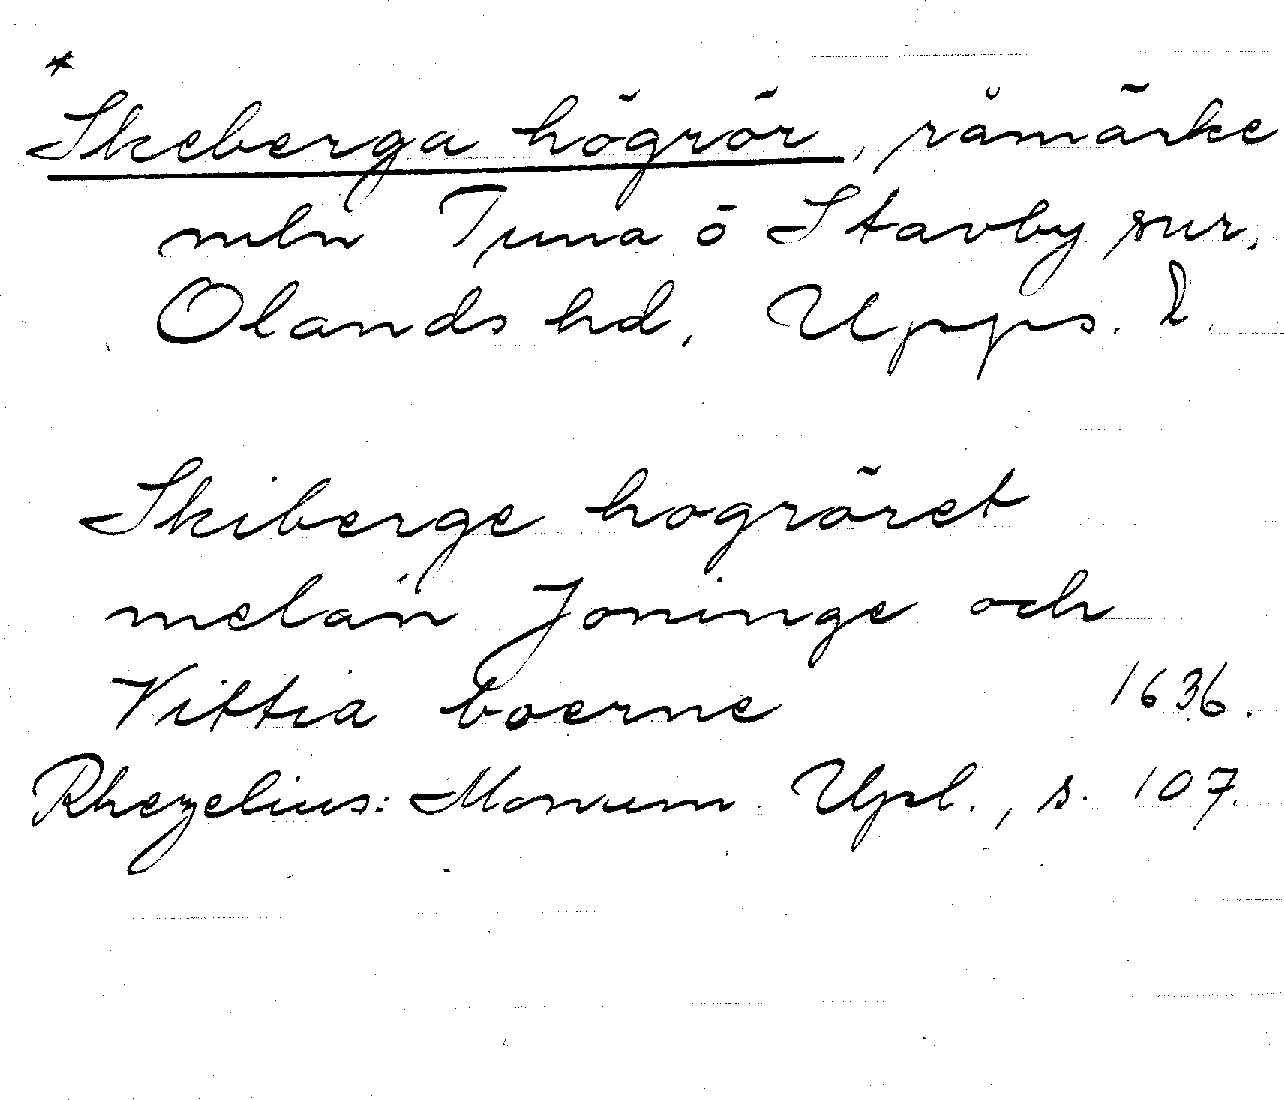 *
Skeberga högrör, råmärke
mln Tuna o Stavby snr,
Olands hd, Upps. l.
Skiberge hogröret
melan Joninge och
Vittia boerne 1636.
Rhezelius: Monum. Upl., s. 107.